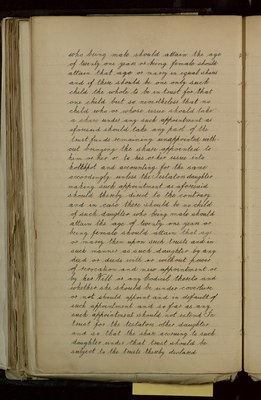 who being male should attain the age
of twenty one years or being female should
attain that age or marry in equal shares
and if there should be one only such
child the whole to be in trust for that
one child but so nevertheless that no
child who or whose issue should take
a share under any such appointment as
aforesaid should take any part of the
trust funds remaining unappointed with-
out bringing the share appointed to
him or her or to his or her issue into
hotchpot and accounting for the same
accordingly unless the testators daughter
making such appointment as aforesaid
should thereby direct to the contrary
and in case there should be no child
of such daughter who being male should
attain the age of twenty one years or
being female should attain that age
or marry then upon such trusts and in
such manner as such daughter by any
deed or deeds with or without power
of revocation and new appointment or
by her Will or any Codicil thereto and
whether she should be under coverture
or not should appoint and in default of
such appointment and so far as any
such appointment should not extend In
trust for the testators other daughter
and so that the share accruing to such
daughter under that trust should be
subject to the trusts thereby declared